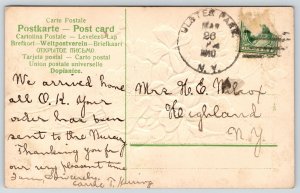 Carte Postale
Postkarte — Post card
Cartolina Postale — Levelező-Lap
Brefkort — Weltpostverein — Briefkaart
ОТКРЫТОЕ ПИСЬМО.
Tarjeta postal — Correspondenzkarte
Union postale universelle
Dopisnice.
ULSTER PARK
MAR
26
N.Y.
We arrived home
all O.K. Your
order has been
sent to the Nursery
Thanking you for
our very pleasant time
Sincerely
Mrs H. E. Wilcox
Highland
N.Y.